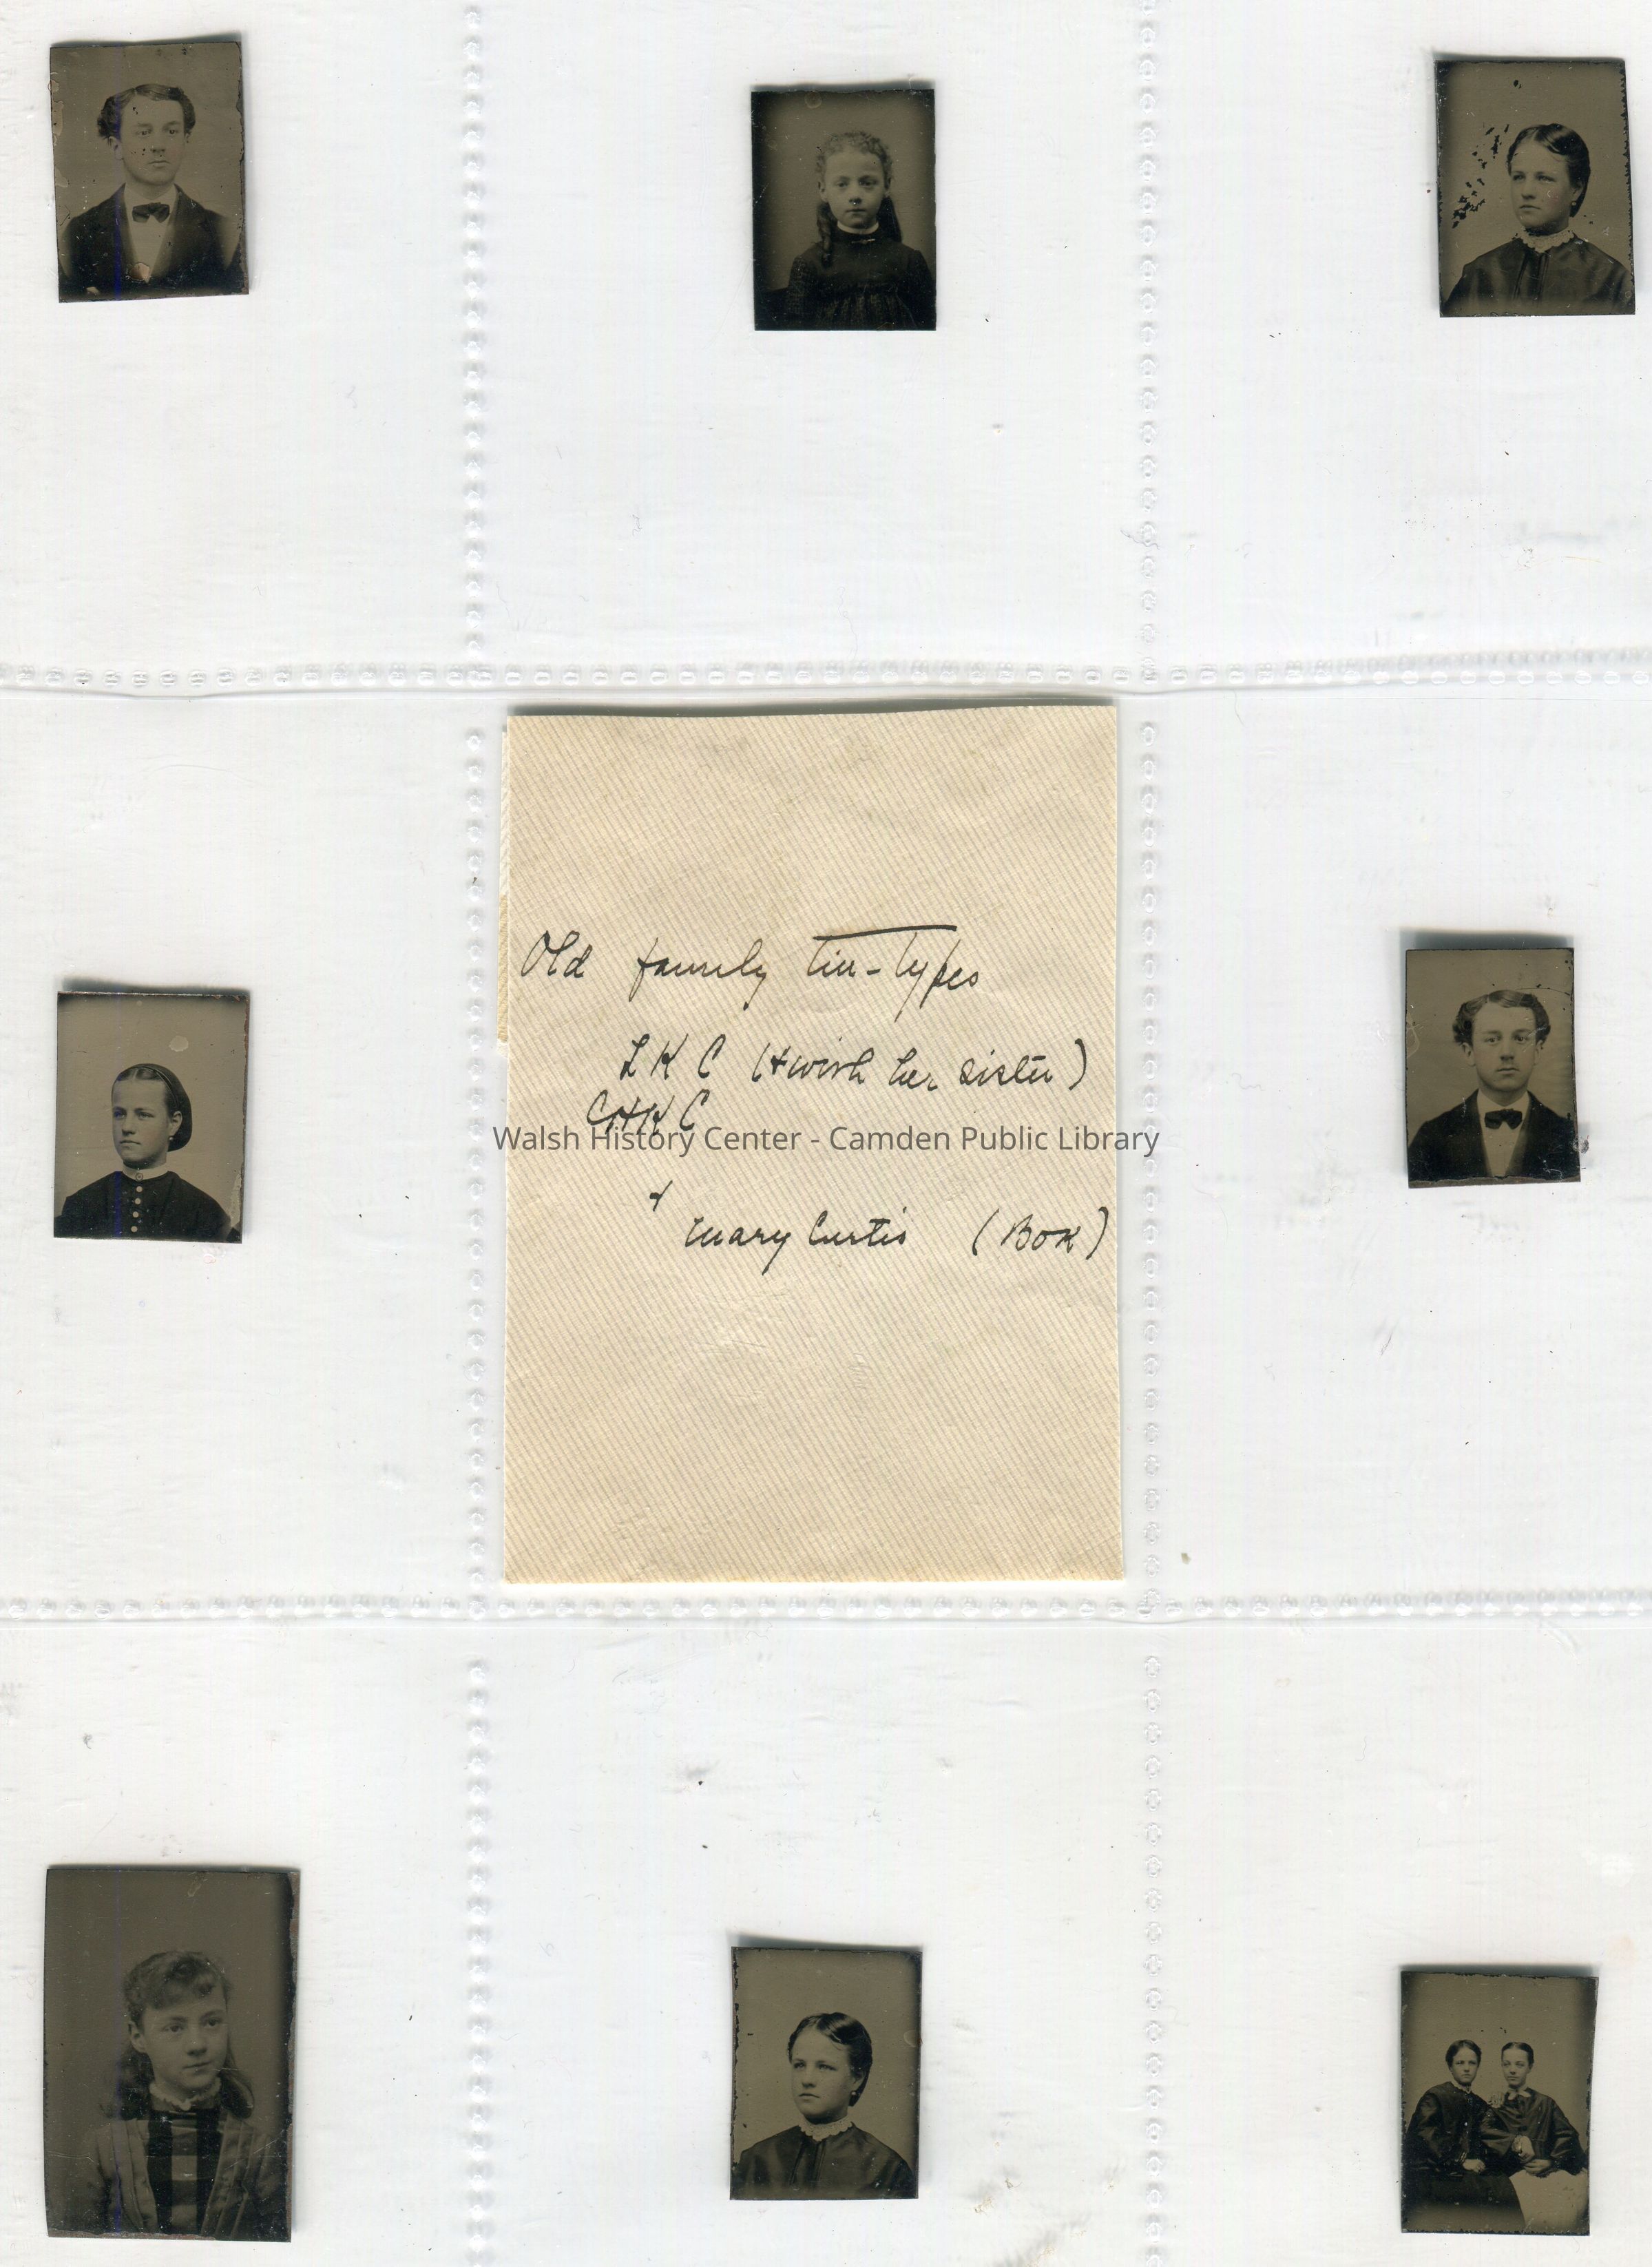 Old family tin-types
L K C (+ with her sister)
C H K C
Walsh History Center - Camden Public Library
+
Mary Curtis (Bok)